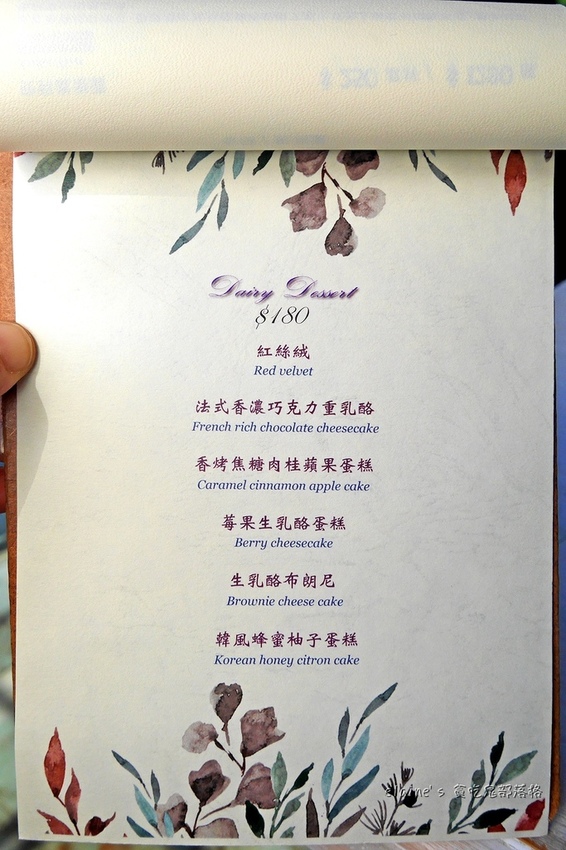 Dairy Dessert
$180
紅絲絨
Red velvet
法式香濃巧克力重乳酪
French rich chocolate cheesecake
香烤焦糖肉桂蘋果蛋糕
Caramel cinnamon apple cake
莓果生乳酪蛋糕
Berry cheesecake
生乳酪布朗尼
Brownie cheese cake
韓風蜂蜜柚子蛋糕
Korean honey citron cake